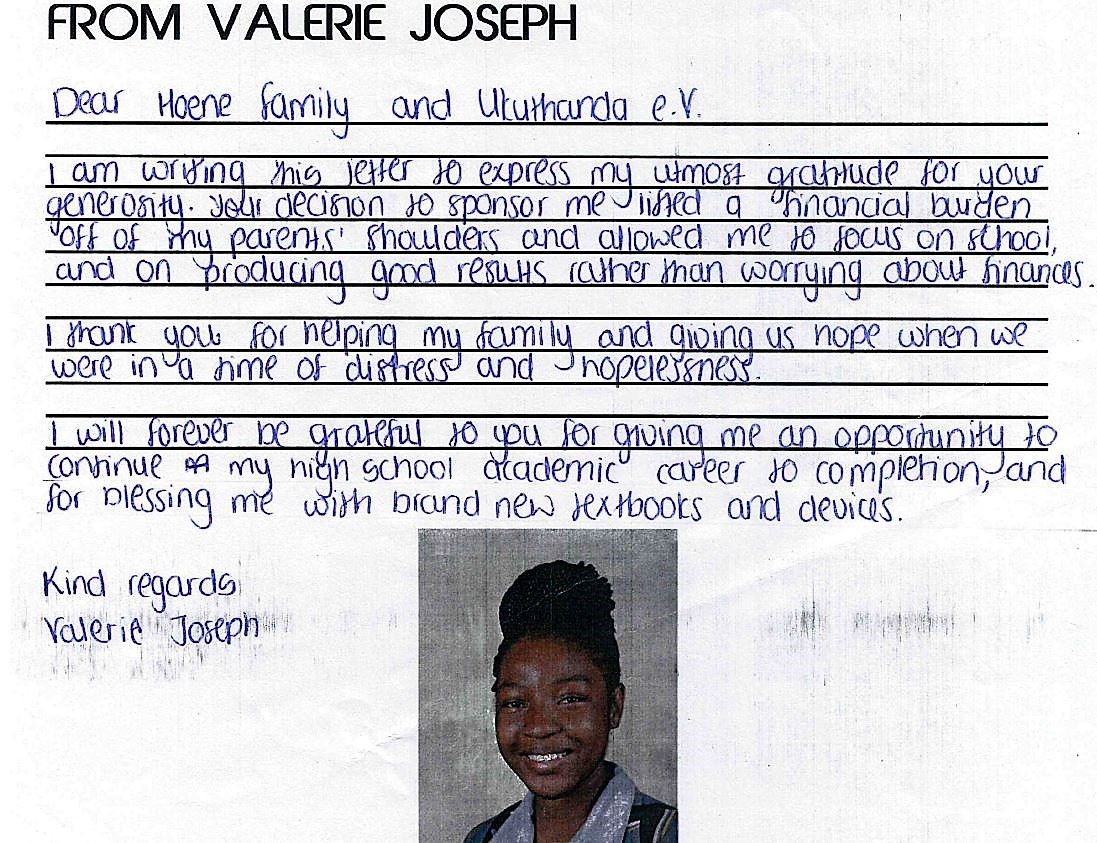 FROM VALERIE JOSEPH
Dear Hoene family and Ukuthanda e.V.
I am writing this letter to express my utmost gratitude for your
generosity. Your decision to sponsor me lifted a financial burden
off of my parents' shoulders and allowed me to focus on school,
and on producing good results rather than worrying about finances.
I thank you for helping my family and giving us hope when we
were in a time of distress and hopelessness.
I will forever be grateful to you for giving me an opportunity to
continue my high school academic career to completion, and
for blessing me with brand new textbooks and devices.
Kind regards
Valerie Joseph